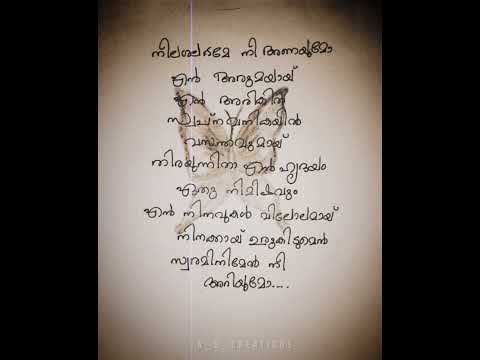 നീലശലഭമേ നീ അണയുമോ
എൻ അരുമയായ്
എൻ അരികിൽ
സ്വപ്നവനികയിൽ
വസന്തവുമായ്
തിരയുന്നിതാ എൻ ഹൃദയം
ഏതു നിമിഷവും
എൻ നിനവുകൾ വിലോലമായ്
നിനക്കായ് ഉരുകിടുമെൻ
സ്വരമിനിമേൽ നീ
അറിയുമോ....
A_S_CREATIONS